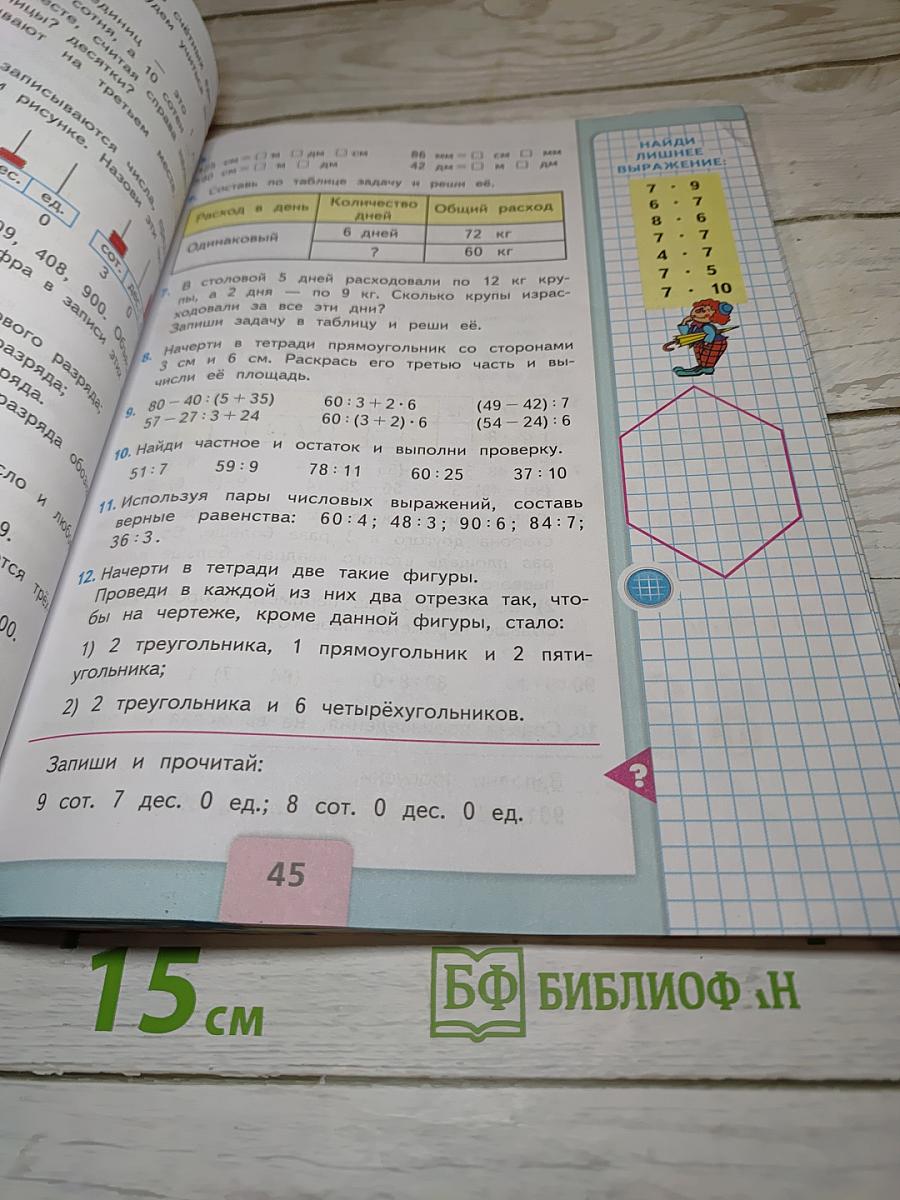 единиц —
сотня, а 10 сотен
записываются числа,
рисунке. Назови эти
ед.
0
сот.
дес.
3
0
408, 900.
в записи этих
разряда;
разряда
число и
9.
см = □ м □ дм □ см
86 мм = □ см □ мм
см = □ м □ дм
42 дм = □ м □ дм
Составь по таблице задачу и реши её.
Расход в день
Количество дней
Общий расход
Одинаковый
6 дней
72 кг
?
60 кг
7. В столовой 5 дней расходовали по 12 кг кру-
пы, а 2 дня — по 9 кг. Сколько крупы израс-
ходовали за все эти дни?
Запиши задачу в таблицу и реши её.
8. Начерти в тетради прямоугольник со сторонами
3 см и 6 см. Раскрась его третью часть и вы-
числи её площадь.
9. 80 – 40 : (5 + 35)
60 : 3 + 2 · 6
(49 – 42) : 7
57 – 27 : 3 + 24
60 : (3 + 2) · 6
(54 – 24) : 6
10. Найди частное и остаток и выполни проверку.
51 : 7 59 : 9 78 : 11 60 : 25 37 : 10
11. Используя пары числовых выражений, составь
верные равенства: 60 : 4; 48 : 3; 90 : 6; 84 : 7;
36 : 3.
12. Начерти в тетради две такие фигуры.
Проведи в каждой из них два отрезка так, что-
бы на чертеже, кроме данной фигуры, стало:
1) 2 треугольника, 1 прямоугольник и 2 пяти-
угольника;
2) 2 треугольника и 6 четырёхугольников.
Запиши и прочитай:
9 сот. 7 дес. 0 ед.; 8 сот. 0 дес. 0 ед.
?
45
НАЙДИ
ЛИШНЕЕ
ВЫРАЖЕНИЕ:
7 · 9
6 · 7
8 · 6
7 · 7
4 · 7
7 · 5
7 · 10
15 см
БФ БИБЛИОФ